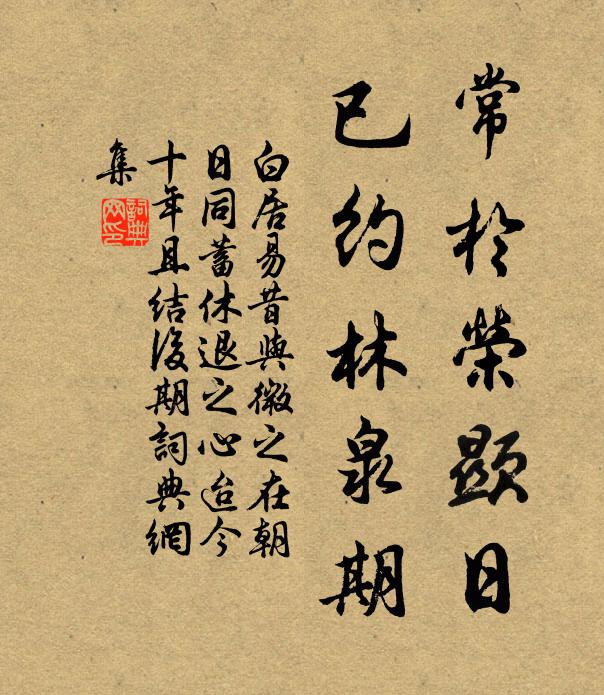 常於榮顯日
已約林泉期
白居易昔與微之在朝
日同蓄休退之心迨今
十年且結後期詞典網
集
詞典
网印